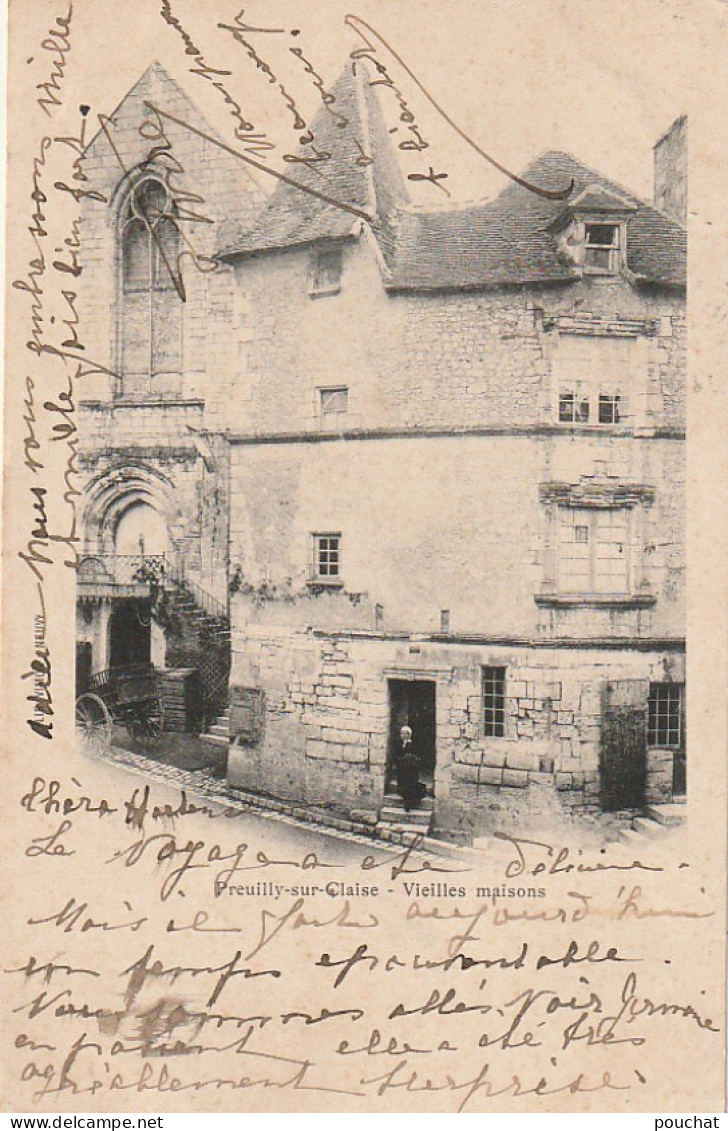 Chère Hortense
Le voyage a été délicieux.
Mais il fait aujourd'hui
un temps épouvantable.
Nous sommes allés voir Germaine
en passant elle a été très
agréablement surprise.
Nous pensons
beaucoup
à vous.
à Bientôt
adieu nous vous embrassons mille
et mille fois bien fort.
Preuilly-sur-Claise - Vieilles maisons
pouchat